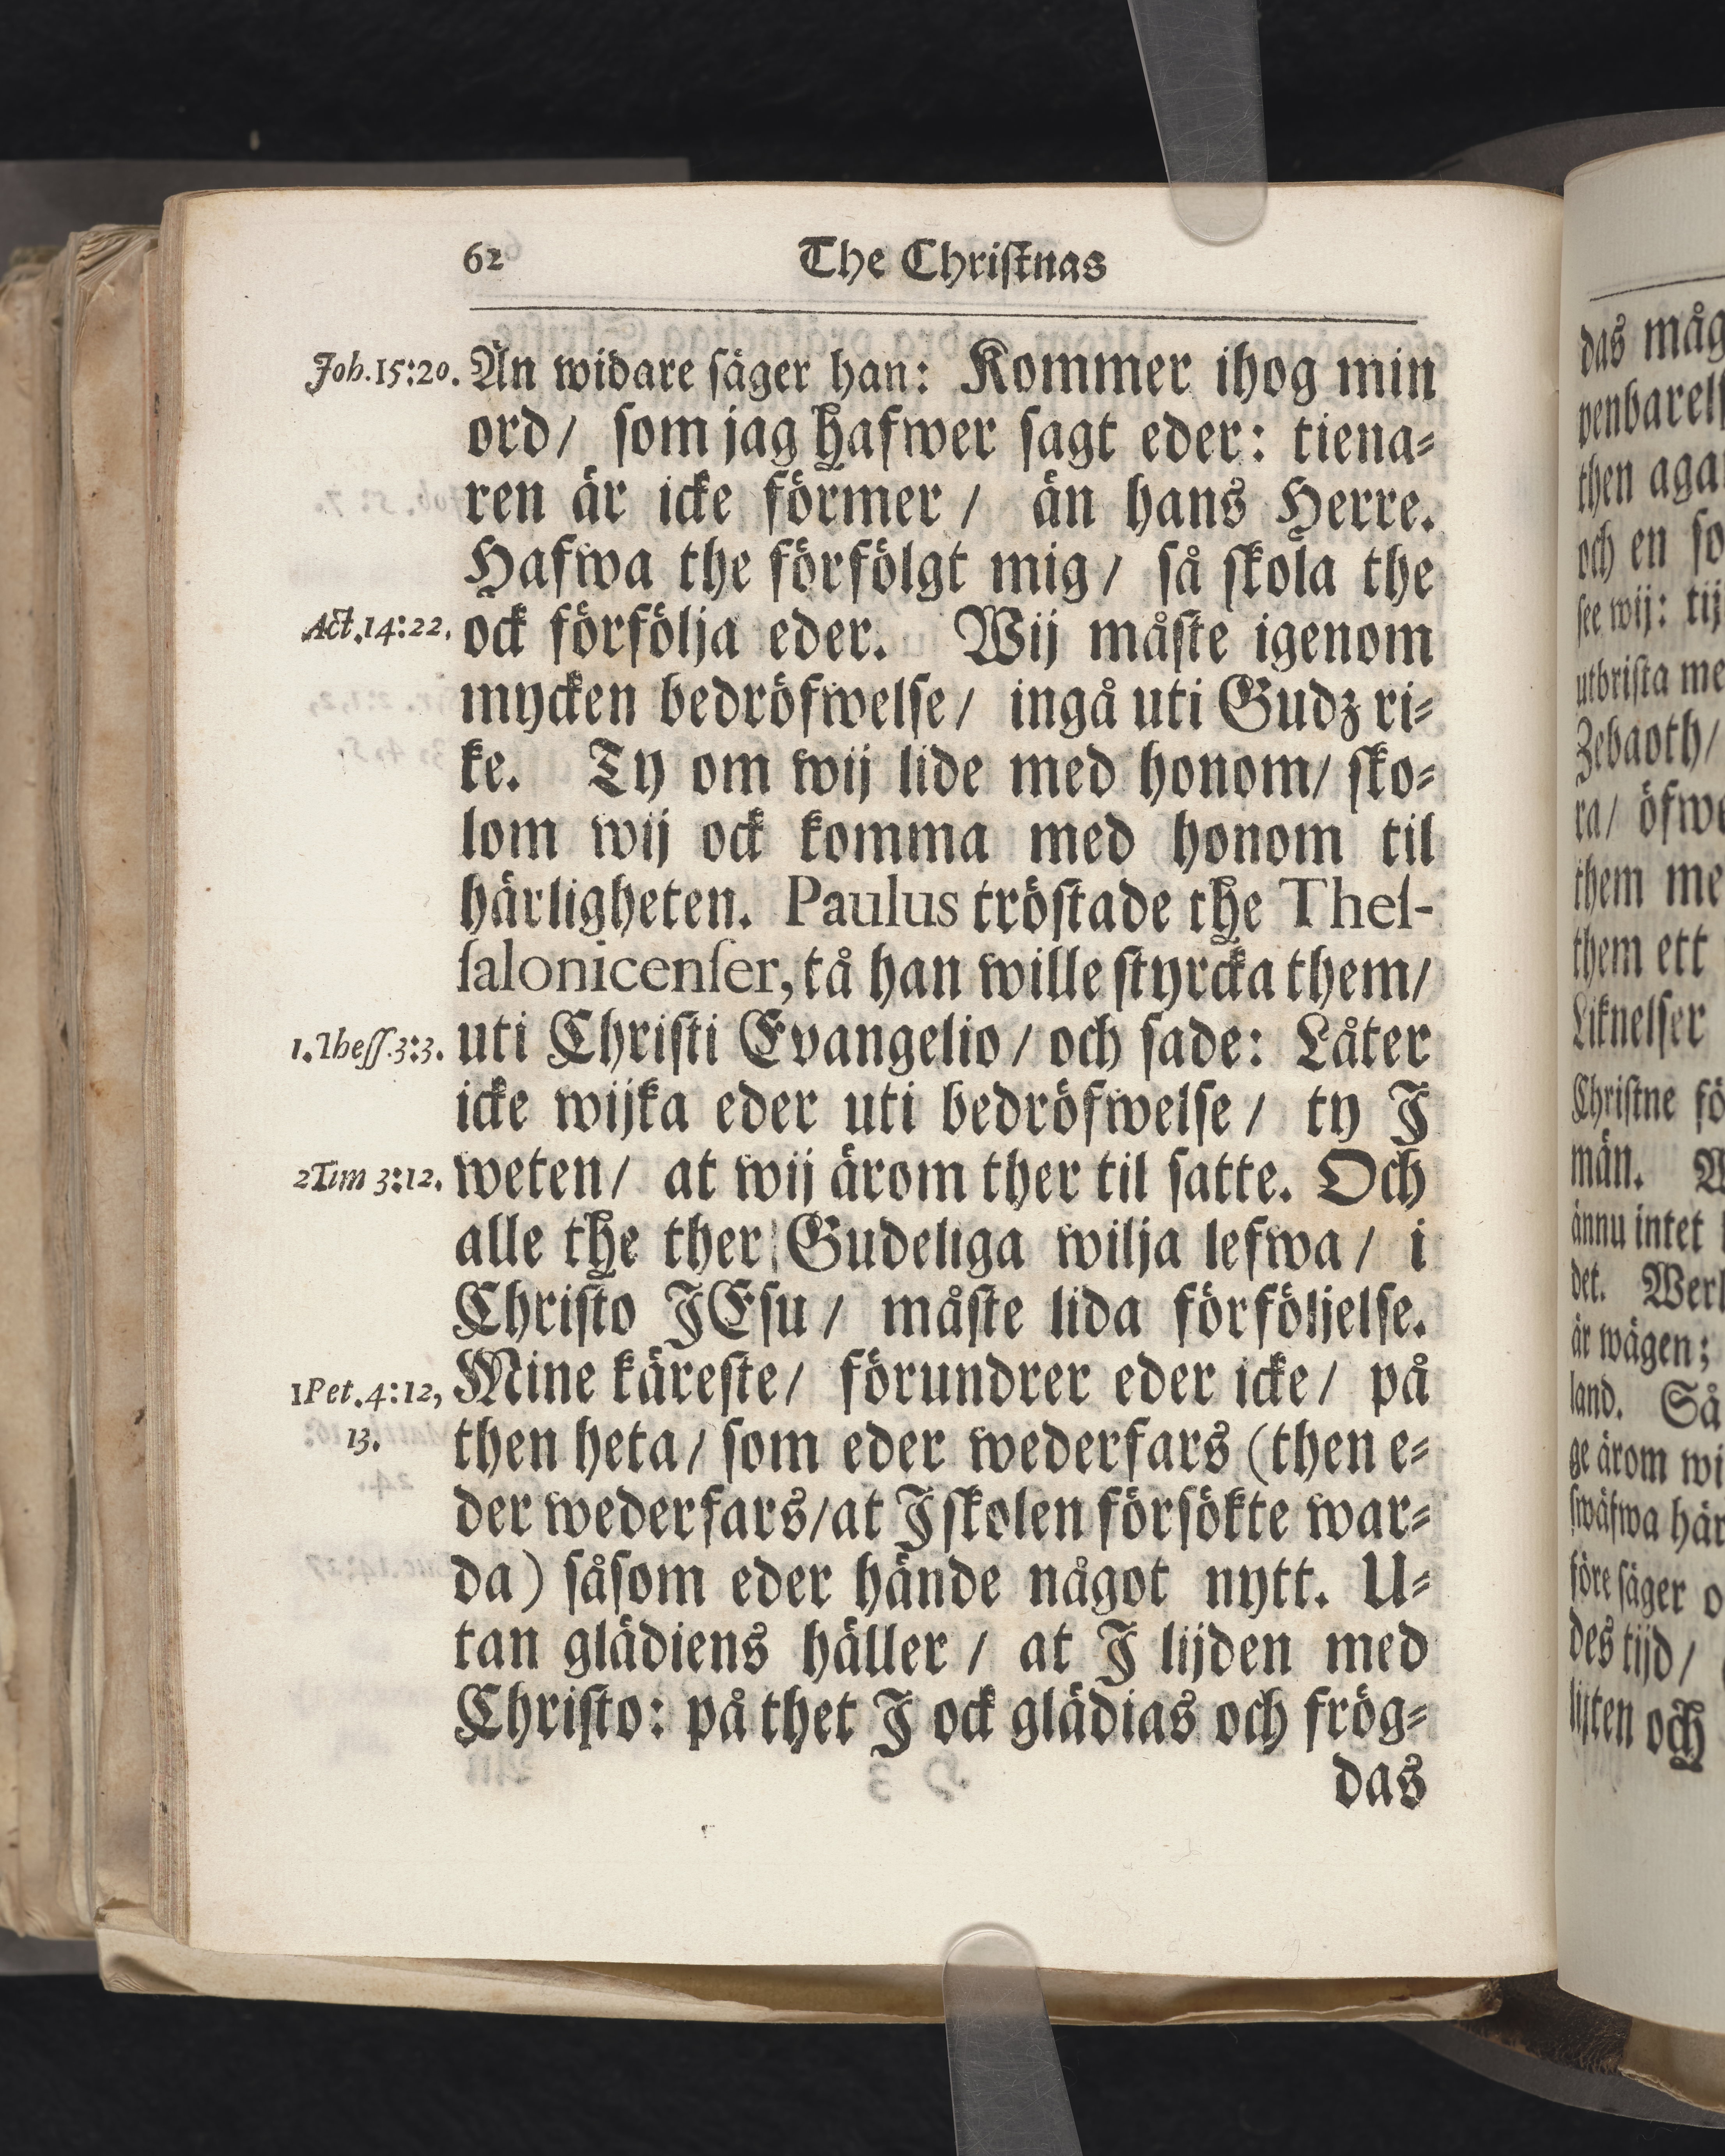 62
The Christnas
Joh.15:20.
Än widare säger han: Kommer ihog min
ord/ som jag hafwer sagt eder: tiena-
ren är icke förmer / än hans Herre.
Hafwa the förfölgt mig / så skola the
Act.14:22.
ock förfölja eder. Wij måste igenom
mycken bedröfwelse / ingå uti Gudz ri-
ke. Ty om wij lide med honom/ sko-
lom wij ock komma med honom til
härligheten. Paulus tröstade the Thes-
salonicenser, tå han wille styrcka them/
1.Thess.3:3.
uti Christi Evangelio / och sade: Låter
icke wijka eder uti bedröfwelse / ty J
2Tim 3:12.
weten/ at wij ärom ther til satte. Och
alle the ther Gudeliga wilja lefwa / i
Christo JEsu / måste lida förföljelse.
1Pet.4:12,
13.
Mine käreste/ förundrer eder icke / på
then heta / som eder wederfars (then e-
der wederfars/at J skolen försökte war-
da) såsom eder hände något nytt. U-
tan glädiens häller / at J lijden med
Christo: på thet J ock glädias och frög-
das
das måg
penbarels
then aga
och en so
see wij: tij
utbrista me
Zebaoth/
ra/ öfwe
them me
them ett
Liknelser
Christne fö
män.
ännu intet
det. Werl
är wägen;
land. Så
ge ärom wi
swäfwa här
före säger o
des tijd /
lijten och